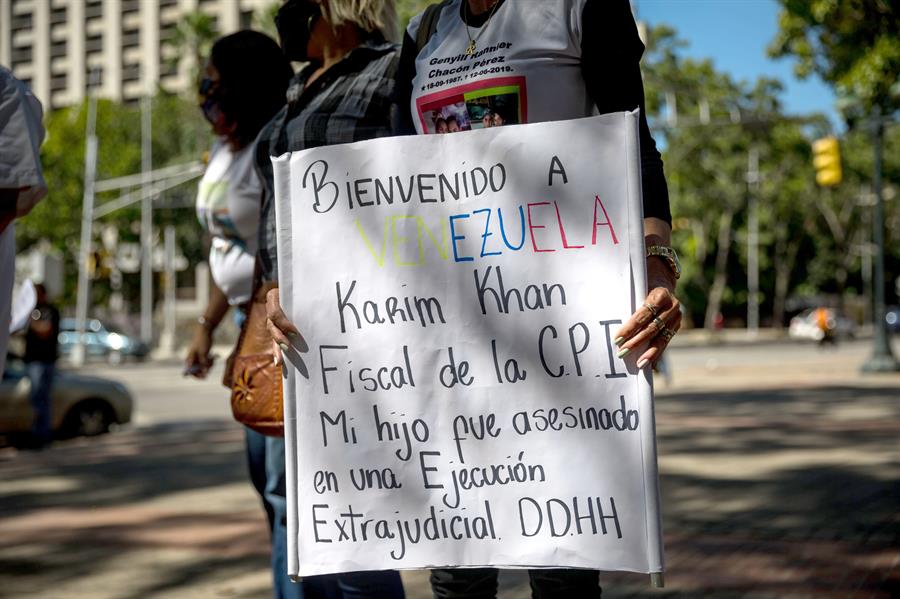 Genyill Hannier
Chacón Pérez
18-09-1987. †12-06-2019.
BIENVENIDO A
VENEZUELA
Karim Khan
Fiscal de la C.P.I
Mi hijo fue asesinado
en una Ejecución
Extrajudicial. DD.HH